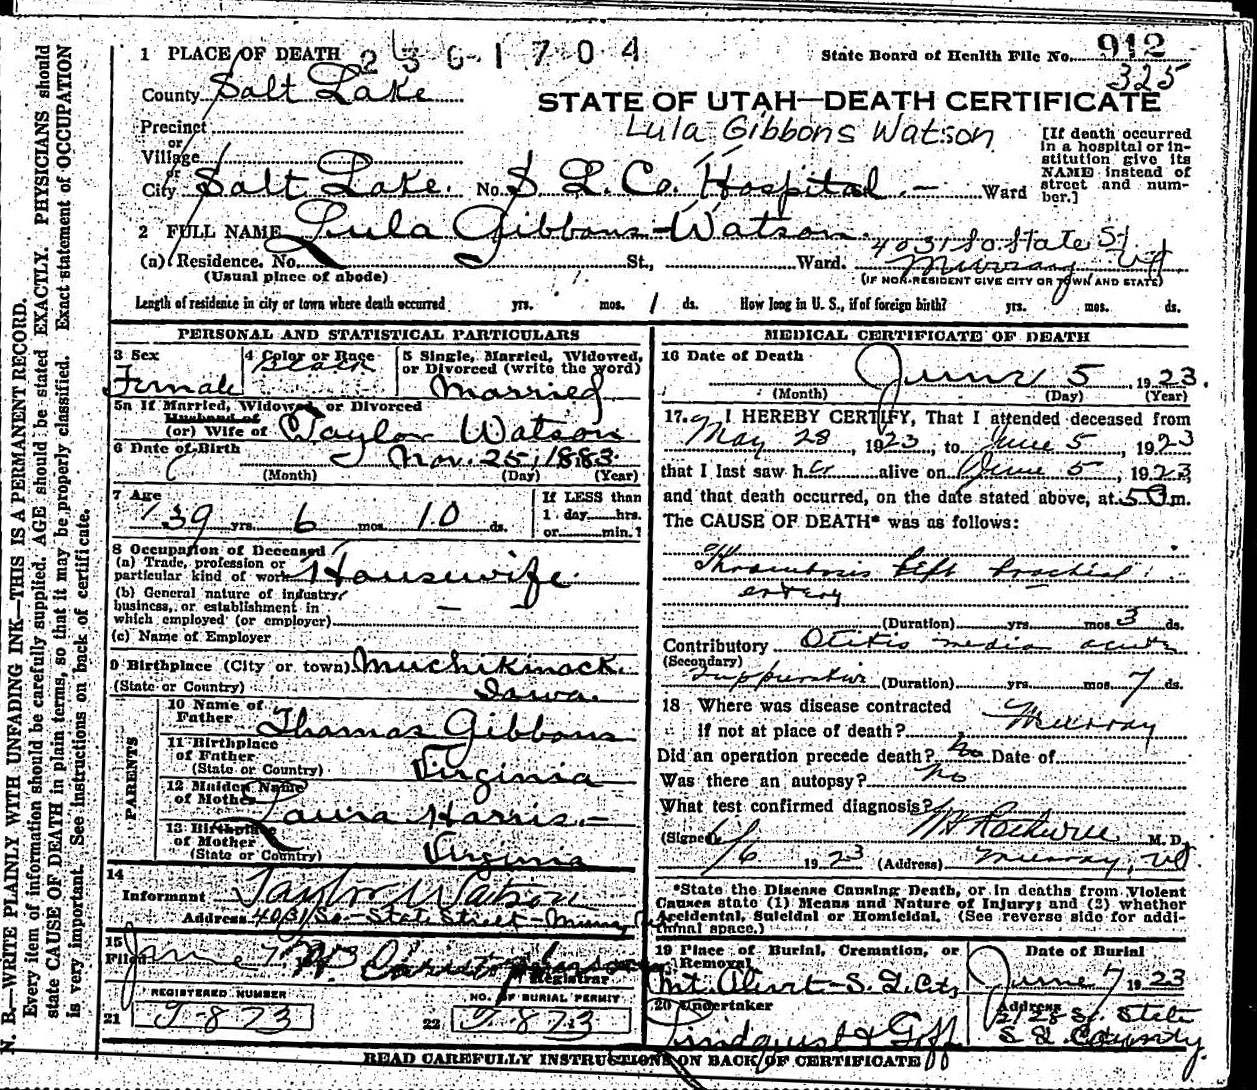 1 PLACE OF DEATH 2361704
State Board of Health File No. 912
325
County Salt Lake
STATE OF UTAH—DEATH CERTIFICATE
Lula Gibbons Watson
Precinct
or
Village
or
City Salt Lake. No. S. L. Co. Hospital.— Ward
[If death occurred in a hospital or in-
stitution give its
NAME instead of
street and num-
ber.]
2 FULL NAME Lula Gibbons-Watson.
(a) Residence. No. St., Ward. 4031 So. State St.
Murray Ut
(Usual place of abode)
(IF NON-RESIDENT GIVE CITY OR TOWN AND STATE)
Length of residence in city or town where death occurred yrs. mos. 1 ds. How long in U. S., if of foreign birth? yrs. mos. ds.
PERSONAL AND STATISTICAL PARTICULARS
3 Sex
Female
4 Color or Race
Black
5 Single, Married, Widowed,
or Divorced (write the word)
Married
5a If Married, Widowed, or Divorced
Husband of
(or) Wife of Taylor Watson
6 Date of Birth Nov. 25, 1883.
(Month) (Day) (Year)
7 Age
39 yrs. 6 mos. 10 ds.
If LESS than
1 day......hrs.
or......min.?
8 Occupation of Deceased
(a) Trade, profession or
particular kind of work Housewife
(b) General nature of industry,
business, or establishment in
which employed (or employer)
(c) Name of Employer
9 Birthplace (City or town) Muchikinock.
(State or Country) Iowa.
PARENTS
10 Name of
Father Thomas Gibbons
11 Birthplace
of Father
(State or Country) Virginia
12 Maiden Name
of Mother Laura Harris.—
13 Birthplace
of Mother
(State or Country) Virginia
14
Informant Taylor Watson
Address 4031 So. State Street—Murray
15
Filed June 7
Registrar
REGISTERED NUMBER
21 T-873
NO. OF BURIAL PERMIT
22 T-873
MEDICAL CERTIFICATE OF DEATH
16 Date of Death
June 5 1923.
(Month) (Day) (Year)
17. I HEREBY CERTIFY, That I attended deceased from
May 28, 1923, to June 5, 1923
that I last saw her alive on June 5, 1923,
and that death occurred, on the date stated above, at 5 m.
The CAUSE OF DEATH* was as follows:
Thrombosis left brachial
artery
(Duration) yrs. mos. 3 ds.
Contributory Otitis media acute
(Secondary)
suppurative (Duration) yrs. mos. 7 ds.
18 Where was disease contracted
If not at place of death? Murray
Did an operation precede death? No Date of
Was there an autopsy? No
What test confirmed diagnosis?
(Signed) M. D.
6/6 1923 (Address) Murray, Ut
*State the Disease Causing Death, or in deaths from Violent
Causes state (1) Means and Nature of Injury; and (2) whether
Accidental, Suicidal or Homicidal. (See reverse side for addi-
tional space.)
19 Place of Burial, Cremation, or
Removal
Mt. Olivet—S. L. City
Date of Burial
June 7 1923
20 Undertaker
Lindquist & Goff
Address
So. State
S L County
READ CAREFULLY INSTRUCTIONS ON BACK OF CERTIFICATE
N. B.—WRITE PLAINLY WITH UNFADING INK—THIS IS A PERMANENT RECORD.
Every item of information should be carefully supplied. AGE should be stated EXACTLY. PHYSICIANS should
state CAUSE OF DEATH in plain terms, so that it may be properly classified. Exact statement of OCCUPATION
is very important. See instructions on back of certificate.